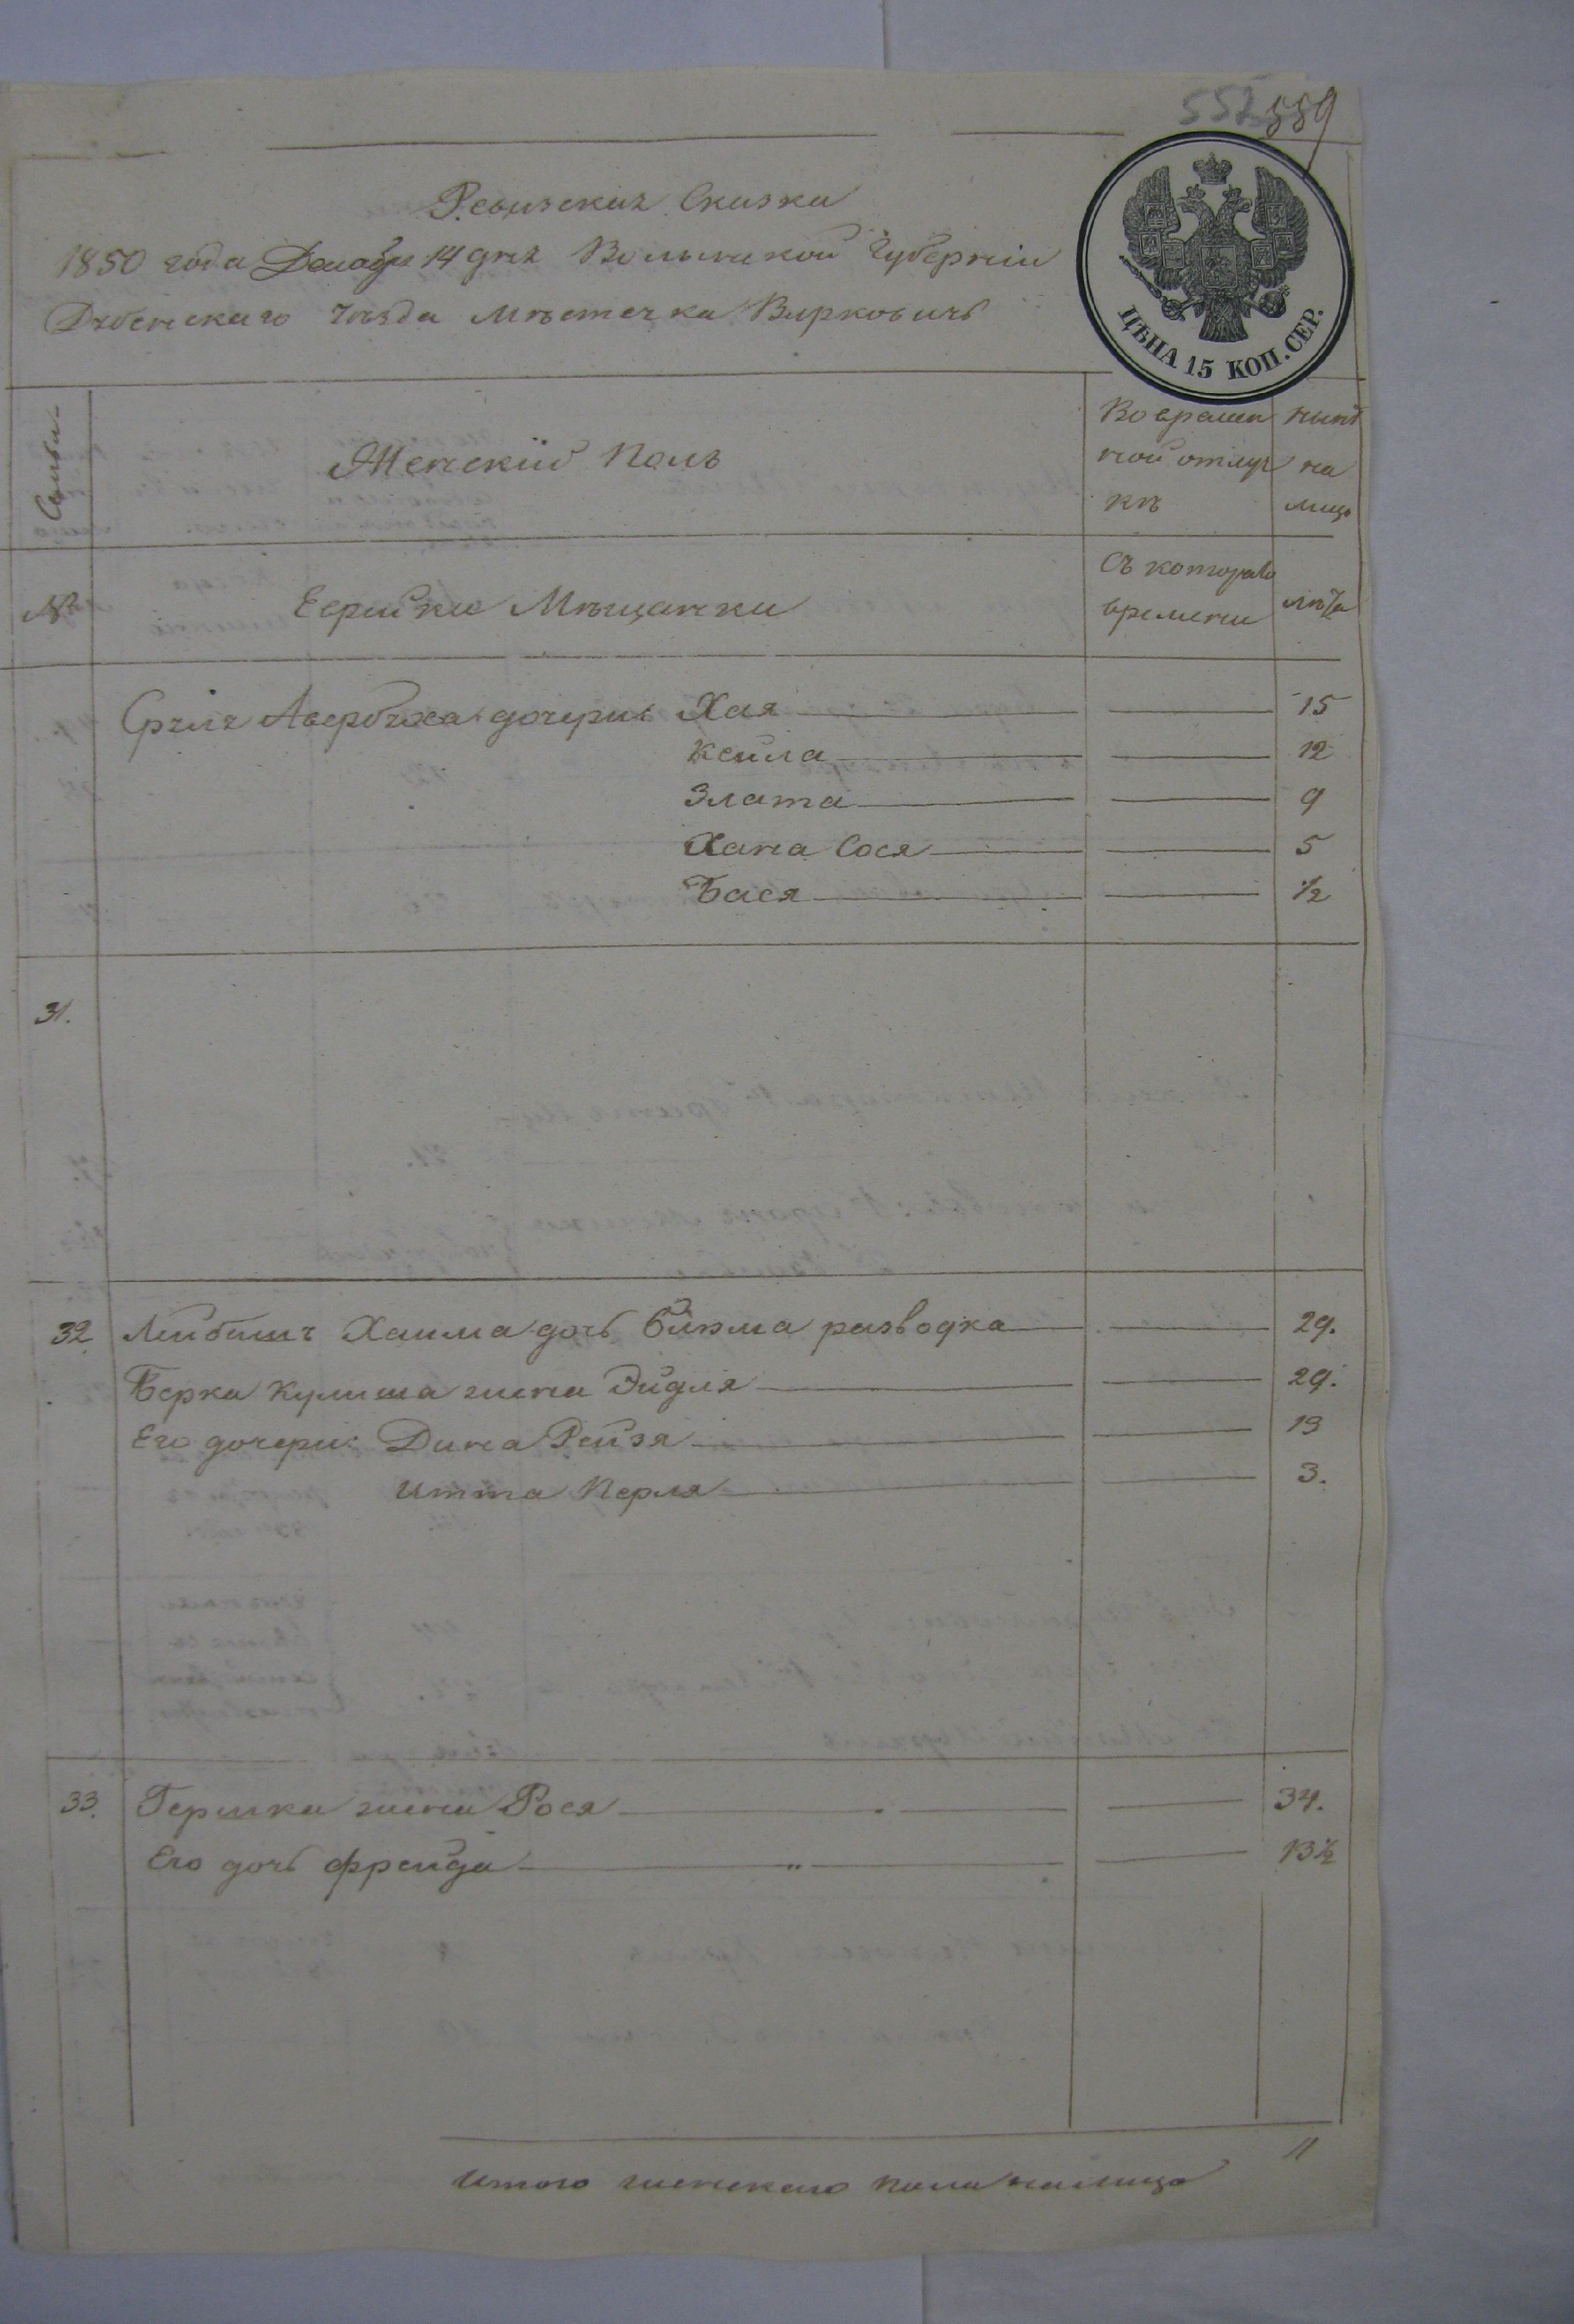 552 559
Ревизская Сказка
1850 года Декабря 14 дня Волынской Губерніи
Дубенскаго Уѣзда Мѣстечка Варковичь
ЦѢНА 15 КОП. СЕР.
Семьи
Женскій Полъ
Во времен
ной отлуч
кѣ
нынѣ
на
лицо
№
Еврейки Мѣщанки
Съ котораго
времени
лѣта
Сруля Авербуха дочери: Хая 15
Кейла 12
Злата 9
Хана Сося 5
Бася ½
31.
32. Лейбиша Хаима дочь разводка 29.
Берка Кулиша жена Эйдля 29.
Его дочери: Дина Рейзя 13
Итта Перля 3.
33. Гершка жена Рося 34.
Его дочь Фрейда 13½
Итого женскаго пола налицо 11